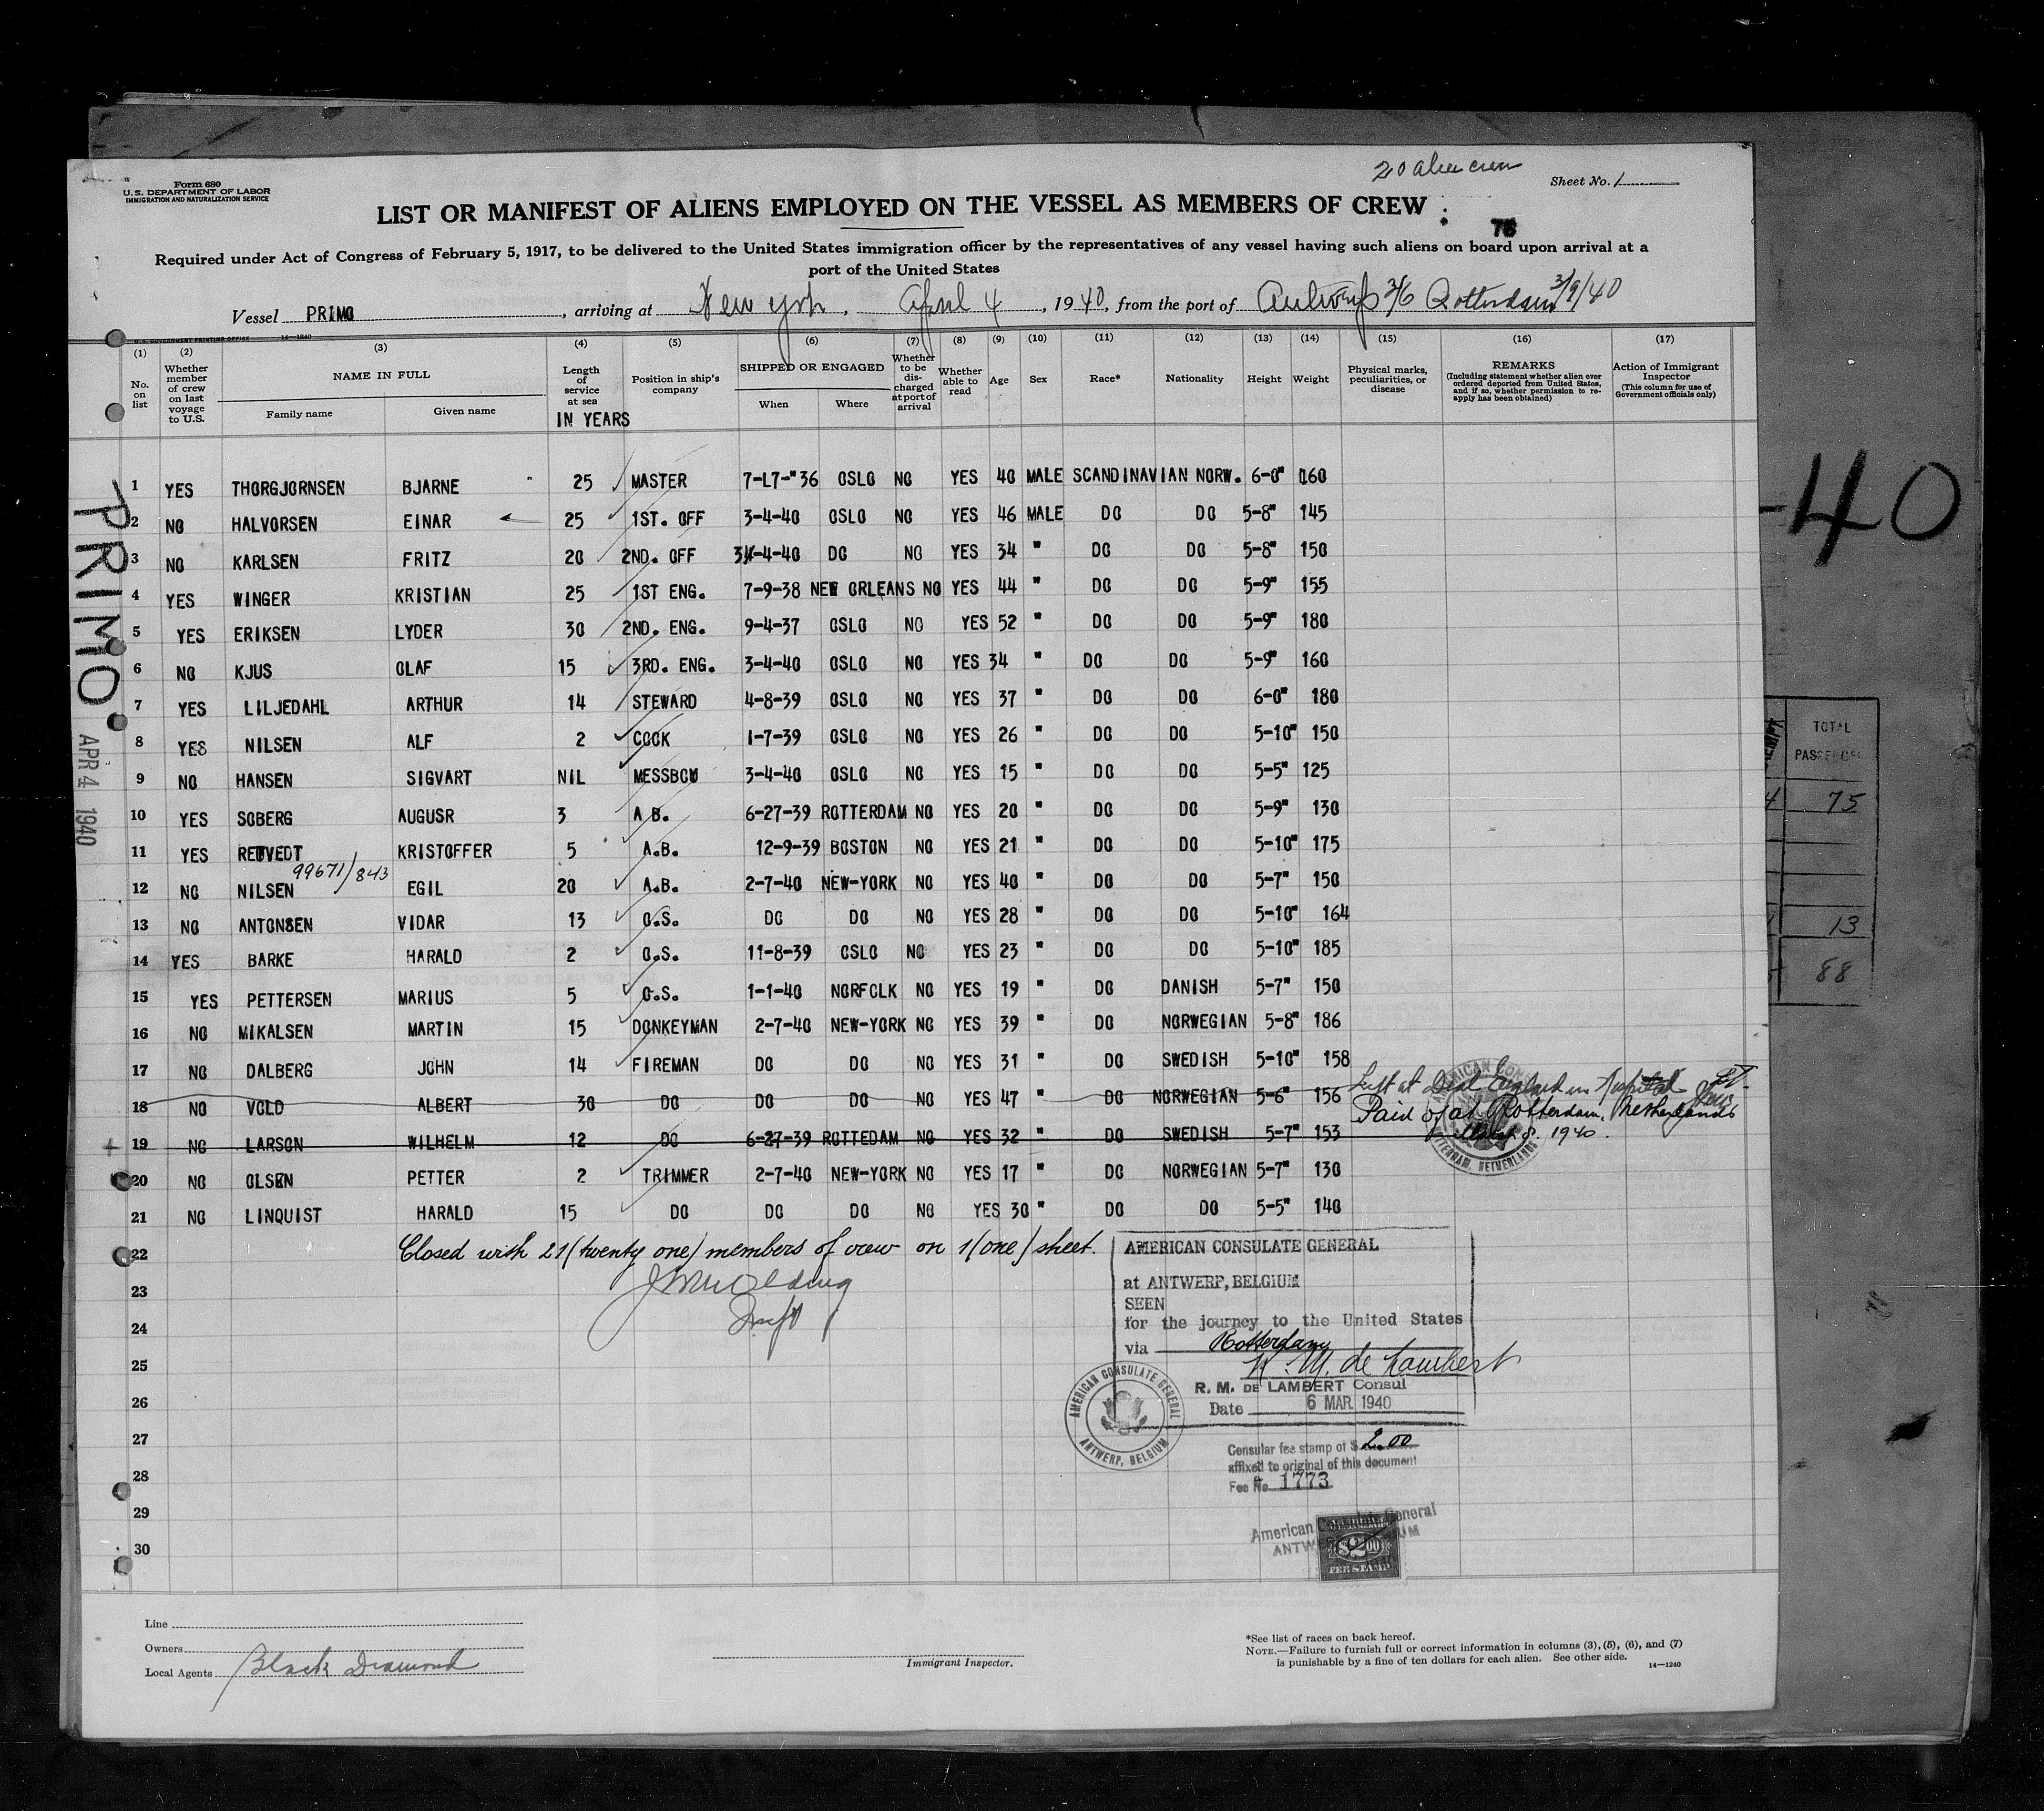 20 alien crew
Form 680
U.S. DEPARTMENT OF LABOR
IMMIGRATION AND NATURALIZATION SERVICE
Sheet No. 1
LIST OR MANIFEST OF ALIENS EMPLOYED ON THE VESSEL AS MEMBERS OF CREW
Required under Act of Congress of February 5, 1917, to be delivered to the United States immigration officer by the representatives of any vessel having such aliens on board upon arrival at a
port of the United States
Vessel PRIMO, arriving at New York, April 4, 1940, from the port of Antwerp 3/6 Rotterdam 3/9/40
U.S. GOVERNMENT PRINTING OFFICE 14—1240
(1) (2) (3) (4) (5) (6) (7) (8) (9) (10) (11) (12) (13) (14) (15) (16) (17)
No. on list
Whether member of crew on last voyage to U.S.
NAME IN FULL
Family name Given name
Length of service at sea
IN YEARS
Position in ship's company
SHIPPED OR ENGAGED
When Where
Whether to be discharged at port of arrival
Whether able to read
Age
Sex
Race*
Nationality
Height
Weight
Physical marks, peculiarities, or disease
REMARKS
(Including statement whether alien ever ordered deported from United States, and if so, whether permission to reapply has been obtained)
Action of Immigrant Inspector
(This column for use of Government officials only)
1 YES THORGJORNSEN BJARNE 25 MASTER 7-L7-"36 OSLO NO YES 40 MALE SCANDINAVIAN NORW. 6-0" 160
2 NO HALVORSEN EINAR 25 1ST. OFF 3-4-40 OSLO NO YES 46 MALE DO DO 5-8" 145
3 NO KARLSEN FRITZ 20 2ND. OFF 3-4-40 DO NO YES 34 " DO DO 5-8" 150
4 YES WINGER KRISTIAN 25 1ST ENG. 7-9-38 NEW ORLEANS NO YES 44 " DO DO 5-9" 155
5 YES ERIKSEN LYDER 30 2ND. ENG. 9-4-37 OSLO NO YES 52 " DO DO 5-9" 180
6 NO KJUS OLAF 15 3RD. ENG. 3-4-40 OSLO NO YES 34 " DO DO 5-9" 160
7 YES LILJEDAHL ARTHUR 14 STEWARD 4-8-39 OSLO NO YES 37 " DO DO 6-0" 180
8 YES NILSEN ALF 2 COOK 1-7-39 OSLO NO YES 26 " DO DO 5-10" 150
9 NO HANSEN SIGVART NIL MESSBOY 3-4-40 OSLO NO YES 15 " DO DO 5-5" 125
10 YES SOBERG AUGUSR 3 A B. 6-27-39 ROTTERDAM NO YES 20 " DO DO 5-9" 130
11 YES REDVEDT KRISTOFFER 5 A.B. 12-9-39 BOSTON NO YES 21 " DO DO 5-10" 175
99671/843
12 NO NILSEN EGIL 20 A.B. 2-7-40 NEW-YORK NO YES 40 " DO DO 5-7" 150
13 NO ANTONSEN VIDAR 13 O.S. DO DO NO YES 28 " DO DO 5-10" 164
14 YES BARKE HARALD 2 O.S. 11-8-39 OSLO NO YES 23 " DO DO 5-10" 185
15 YES PETTERSEN MARIUS 5 O.S. 1-1-40 NORFOLK NO YES 19 " DO DANISH 5-7" 150
16 NO MIKALSEN MARTIN 15 DONKEYMAN 2-7-40 NEW-YORK NO YES 39 " DO NORWEGIAN 5-8" 186
17 NO DALBERG JOHN 14 FIREMAN DO DO NO YES 31 " DO SWEDISH 5-10" 158
18 NO VOLD ALBERT 30 DO DO DO NO YES 47 " DO NORWEGIAN 5-6" 156 Left at Deal England in Hospital
Paid off at Rotterdam, Netherlands
19 NO LARSON WILHELM 12 DO 6-27-39 ROTTEDAM NO YES 32 " DO SWEDISH 5-7" 153 March 8. 1940.
20 NO OLSEN PETTER 2 TRIMMER 2-7-40 NEW-YORK NO YES 17 " DO NORWEGIAN 5-7" 130
21 NO LINQUIST HARALD 15 DO DO DO NO YES 30 " DO DO 5-5" 140
22 Closed with 21 (twenty one) members of crew on 1 (one) sheet.
23
24
25
26
27
28
29
30
AMERICAN CONSULATE GENERAL
at ANTWERP, BELGIUM
SEEN
for the journey to the United States
via Rotterdam
R. M. de Lambert
R. M. DE LAMBERT Consul
Date 6 MAR 1940
AMERICAN CONSULATE GENERAL
ANTWERP, BELGIUM
Consular fee stamp of $ 2.00
affixed to original of this document
Fee No. 1773
American Consulate General
ANTWERP, BELGIUM
$2.00
FEE STAMP
Line
Owners
Local Agents Black Diamond
Immigrant Inspector.
*See list of races on back hereof.
NOTE.—Failure to furnish full or correct information in columns (3), (5), (6), and (7)
is punishable by a fine of ten dollars for each alien. See other side.
14—1240
PRIMO
APR 4 1940
-40
TOTAL
75
13
88